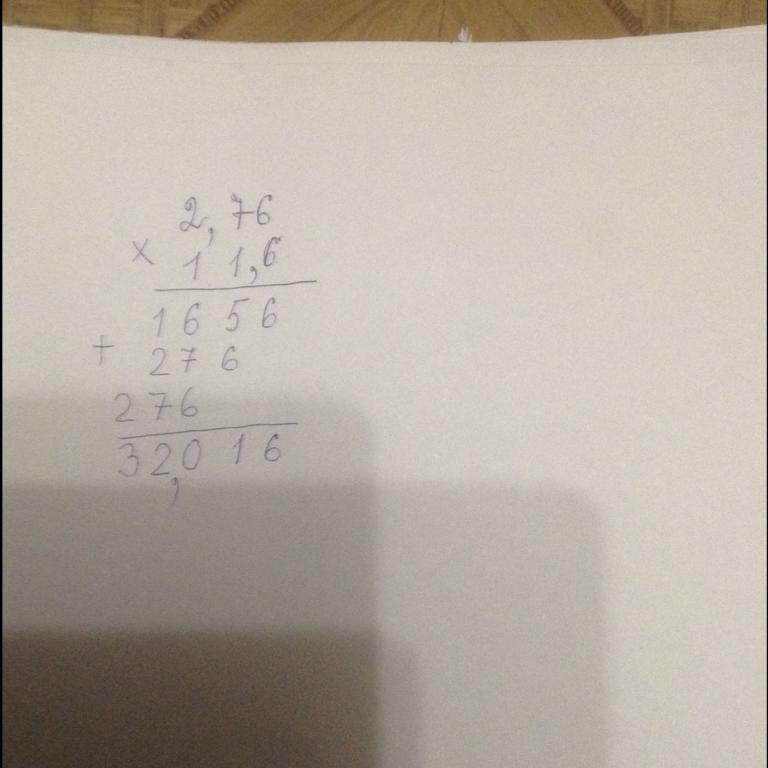 2,76
× 11,6
1656
+ 276
276
32,016